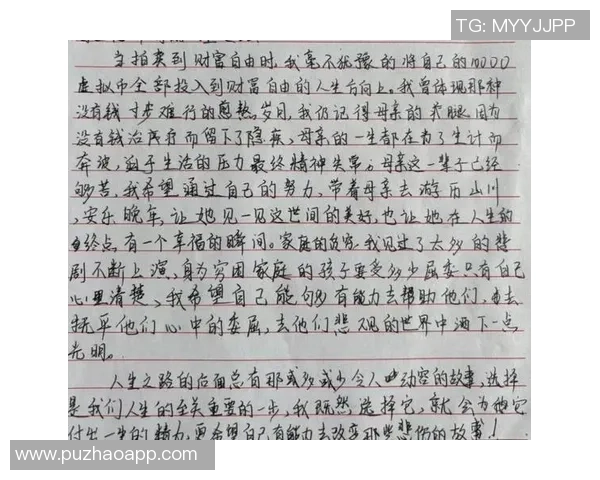 TG: MYYJJPP
当拍卖到财富自由时,我毫不犹豫的将自己的10000
虚拟币全部投入到财富自由的人生方向上。我曾体现那种
没有钱寸步难行的煎熬岁月,我仍记得母亲的 腿因为
没有钱治疗而留下了隐疾、母亲的一生都在为了生计而
奔波,迫于生活的压力最终精神失常。母亲这一辈子已经
够苦,我希望通过自己的努力,带着母亲去游历山川
,安乐晚年,让她见一见这世间的美好,也让她在人生的
终点有一个幸福的瞬间。家庭的贫穷,我见过了太多的悲
剧不断上演,身为穷困家庭的孩子要受多少屈委只有自己
心里清楚、我希望自己能够有能力去帮助他们,去
抚平他们心中的委屈,去他们悲观的世界中洒下一点
光明。
人生之路的后面总有那或多或少令人动容的故事,选择
是我们人生的至关重要的一步,我既然选择它,就会为他
付出一生的精力,更希望自己有能力去改变那些悲伤的故事!
www.puzhaoapp.com